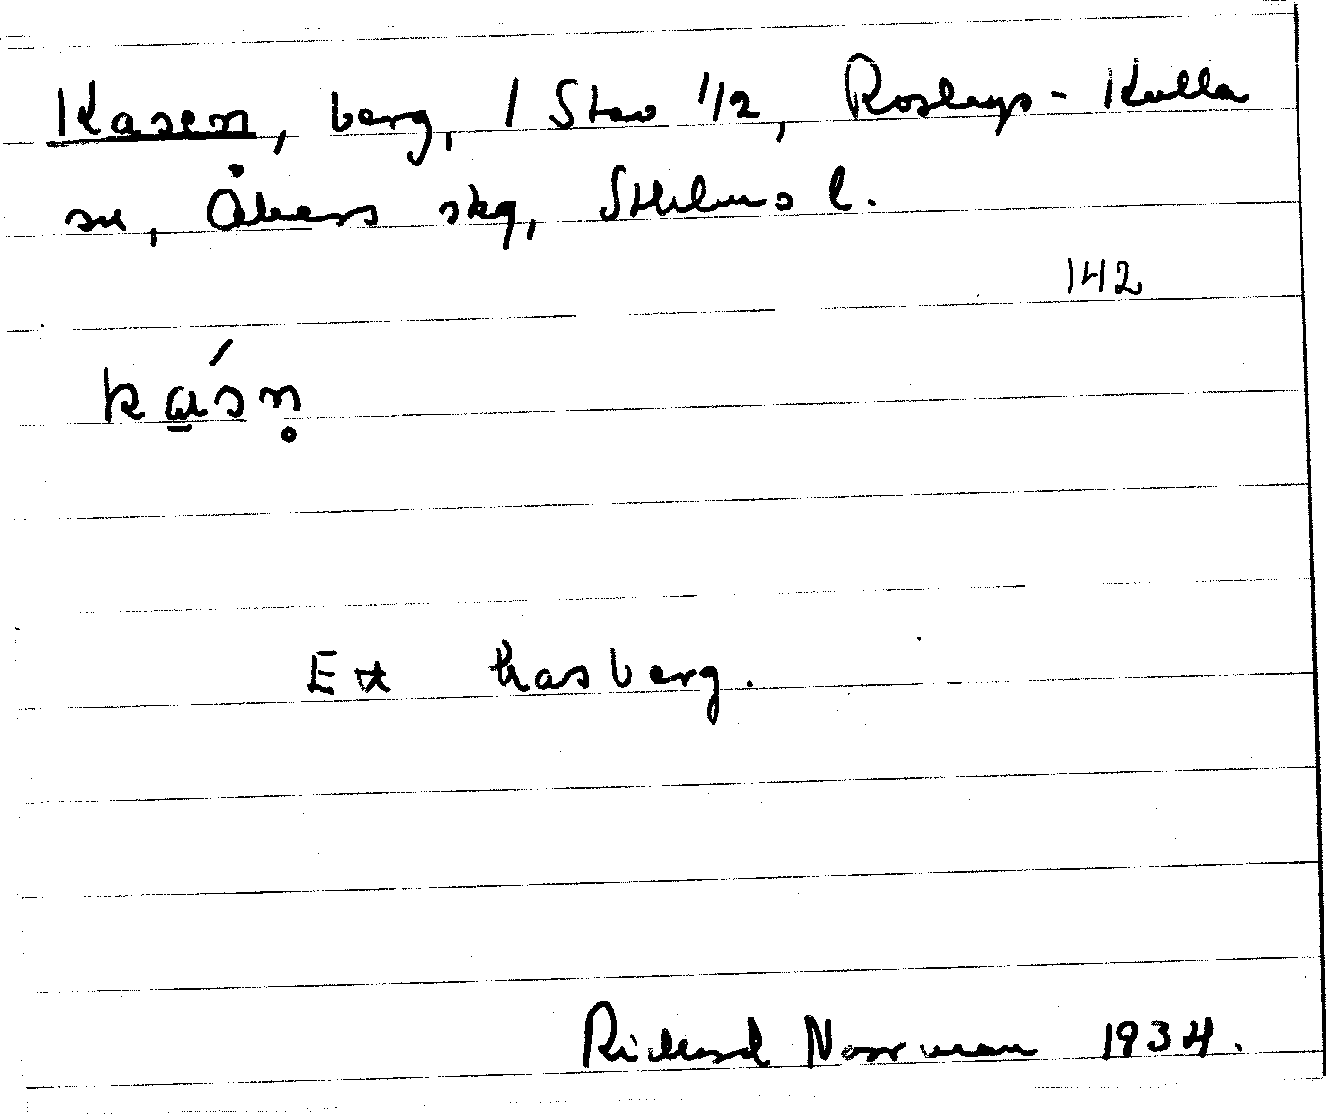 Kasen, berg, / Stav 1/2, Roslags-Kulla
sn, Åkers skg, Sthlms l.
142
kɑ́sn̥
Ett kasberg.
Rickard Norrman 1934.